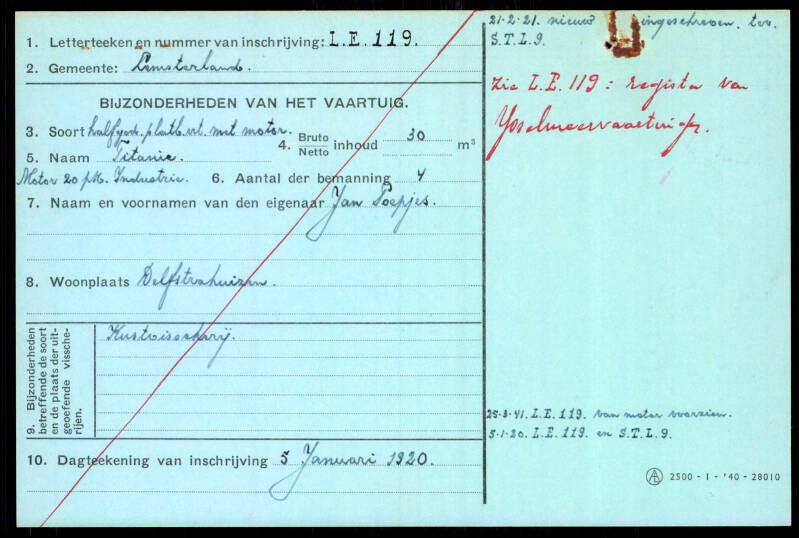 1. Letterteeken en nummer van inschrijving: L.E. 119.
2. Gemeente: Lemsterland.
BIJZONDERHEDEN VAN HET VAARTUIG.
3. Soort halfged. platb. vt. mit motor.
4. Bruto
Netto inhoud 30 m³
5. Naam Titanic.
Motor 20 pk. Industrie.
6. Aantal der bemanning 4
7. Naam en voornamen van den eigenaar Jan Poepjes.
8. Woonplaats Delfstrahuizen.
9. Bijzonderheden
betreffende de soort
en de plaats der uit-
geoefende vissche-
rijen.
Kustvisscherij.
10. Dagteekening van inschrijving 5 Januari 1920.
21-2-21. nieuw ingeschreven. tev.
S.T.L. 9.
Zie L.E. 119: register van
IJsselmeervaartuigen.
25-3-41. L.E. 119. van motor voorzien.
5-1-20. L.E. 119. en S.T.L. 9.
AL 2500 - I - '40 - 28010